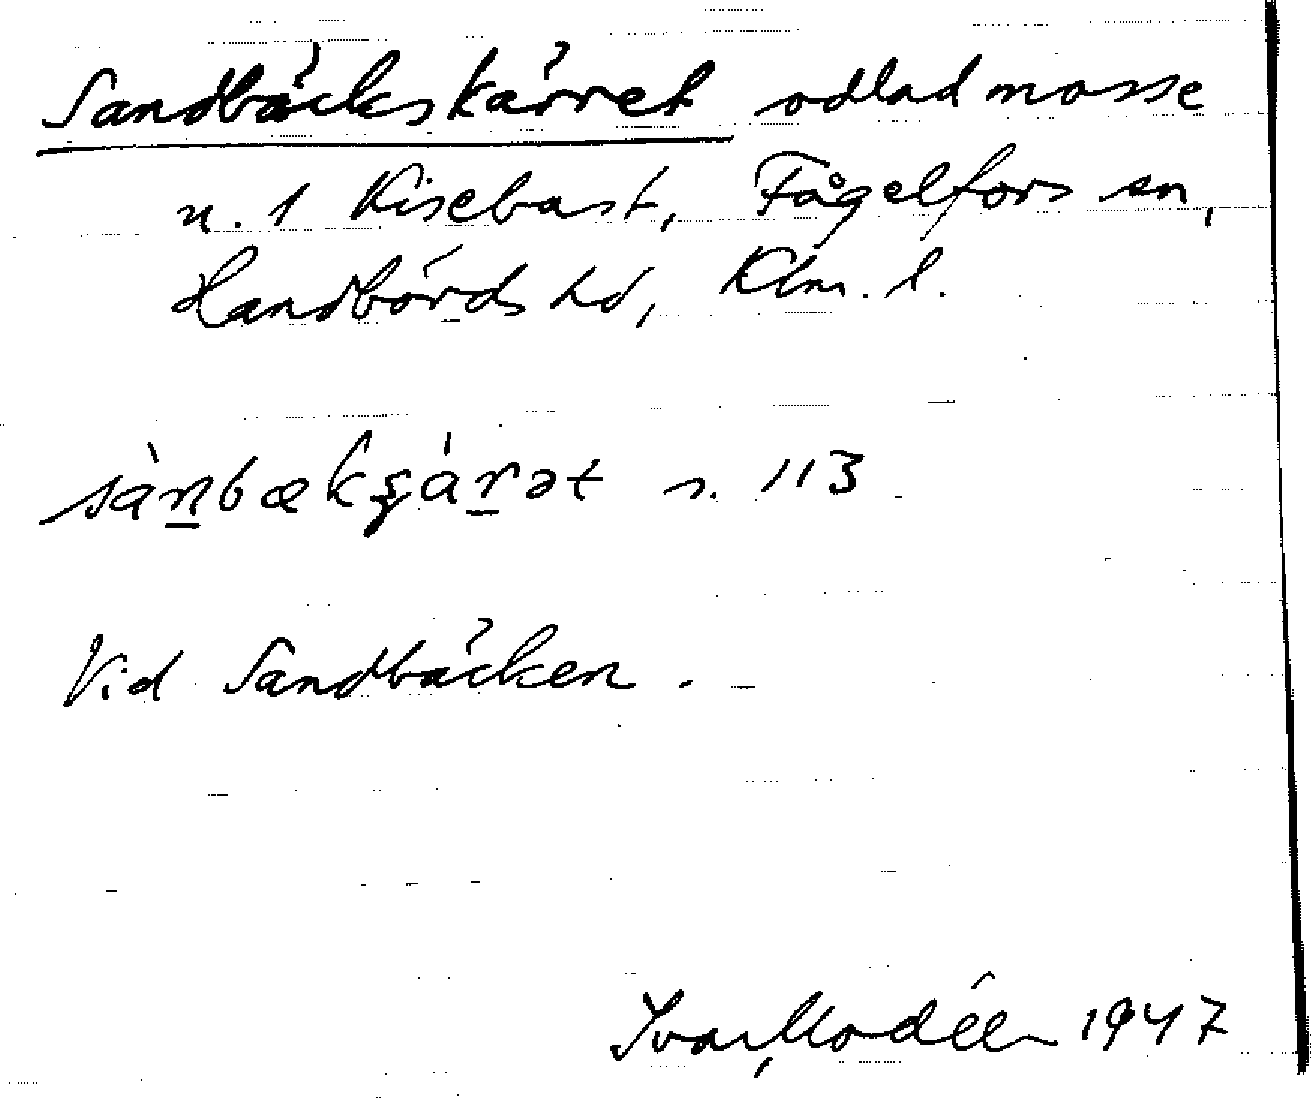 Sandbäckskärret odlad mosse
u. 1 Kisebast, Fågelfors sn,
Handbörds hd, Klm. l.
sàn̠bækʂár̠ət s. 113
Vid Sandbäcken.
Ivar Modéer 1947